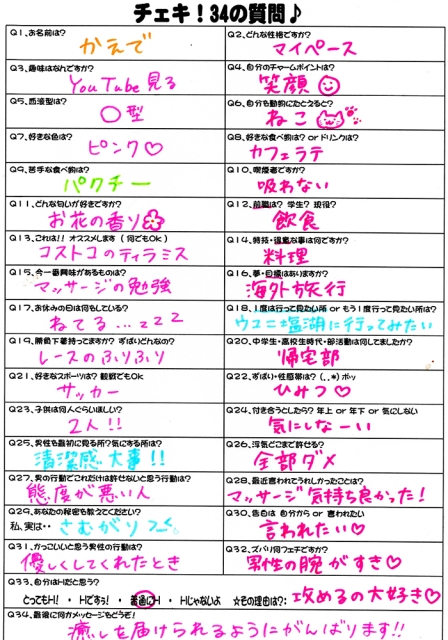 チェキ！34の質問♪
Q1、お名前は？
かえで
Q2、どんな性格ですか？
マイペース
Q3、趣味はなんですか？
YouTube見る
Q4、自分のチャームポイントは？
笑顔
Q5、血液型は？
〇型
Q6、自分を動物にたとえると？
ねこ
Q7、好きな色は？
ピンク♡
Q8、好きな食べ物は？ or ドリンクは？
カフェラテ
Q9、苦手な食べ物は？
パクチー
Q10、喫煙者ですか？
吸わない
Q11、どんな匂いが好きですか？
お花の香り
Q12、前職は？ 学生？ 現役？
飲食
Q13、これは!! オススメします（何でもOk）
コストコのティラミス
Q14、特技・得意な事は何ですか？
料理
Q15、今一番興味があるものは？
マッサージの勉強
Q16、夢・目標はありますか？
海外旅行
Q17、お休みの日は何をしている？
ねてる...zzz
Q18、1度は行って見たい所 or もう1度行って見たい所は？
ウユニ塩湖に行ってみたい
Q19、勝負下着持ってますか？ ずばりどんなの？
レースのふりふり
Q20、中学生・高校生時代・部活動は何してましたか？
帰宅部
Q21、好きなスポーツは？ 観戦でもOK
サッカー
Q22、ずばり・性感帯は？（．．*）ポッ
ひみつ♡
Q23、子供は何人ぐらいほしい？
2人!!
Q24、付き合うとしたら？ 年上 or 年下 or 気にしない
気にしなーい
Q25、男性を最初に見る所？気にする所は？
清潔感大事!!
Q26、浮気どこまで許せる？
全部ダメ
Q27、男の行動でこれだけは許せないと思う行動は？
態度が悪い人
Q28、最近言われてうれしかったことは？
マッサージ気持ち良かった！
Q29、あなたの秘密を教えてください？
私、実は・・ さむがり
Q30、告白は 自分から or 言われたい
言われたい♡
Q31、かっこいいと思う男性の行動は？
優しくしてくれたとき
Q32、ズバリ何フェチですか？
男性の腕がすき♡
Q33、自分はHだと思う？
とってもH！ ・ Hですぅ！ ・ 普通にH ・ Hじゃないよ ☆その理由は？：攻めるの大好き♡
Q34、最後に何かメッセージをどうぞ！
癒しを届けられるようにがんばります!!